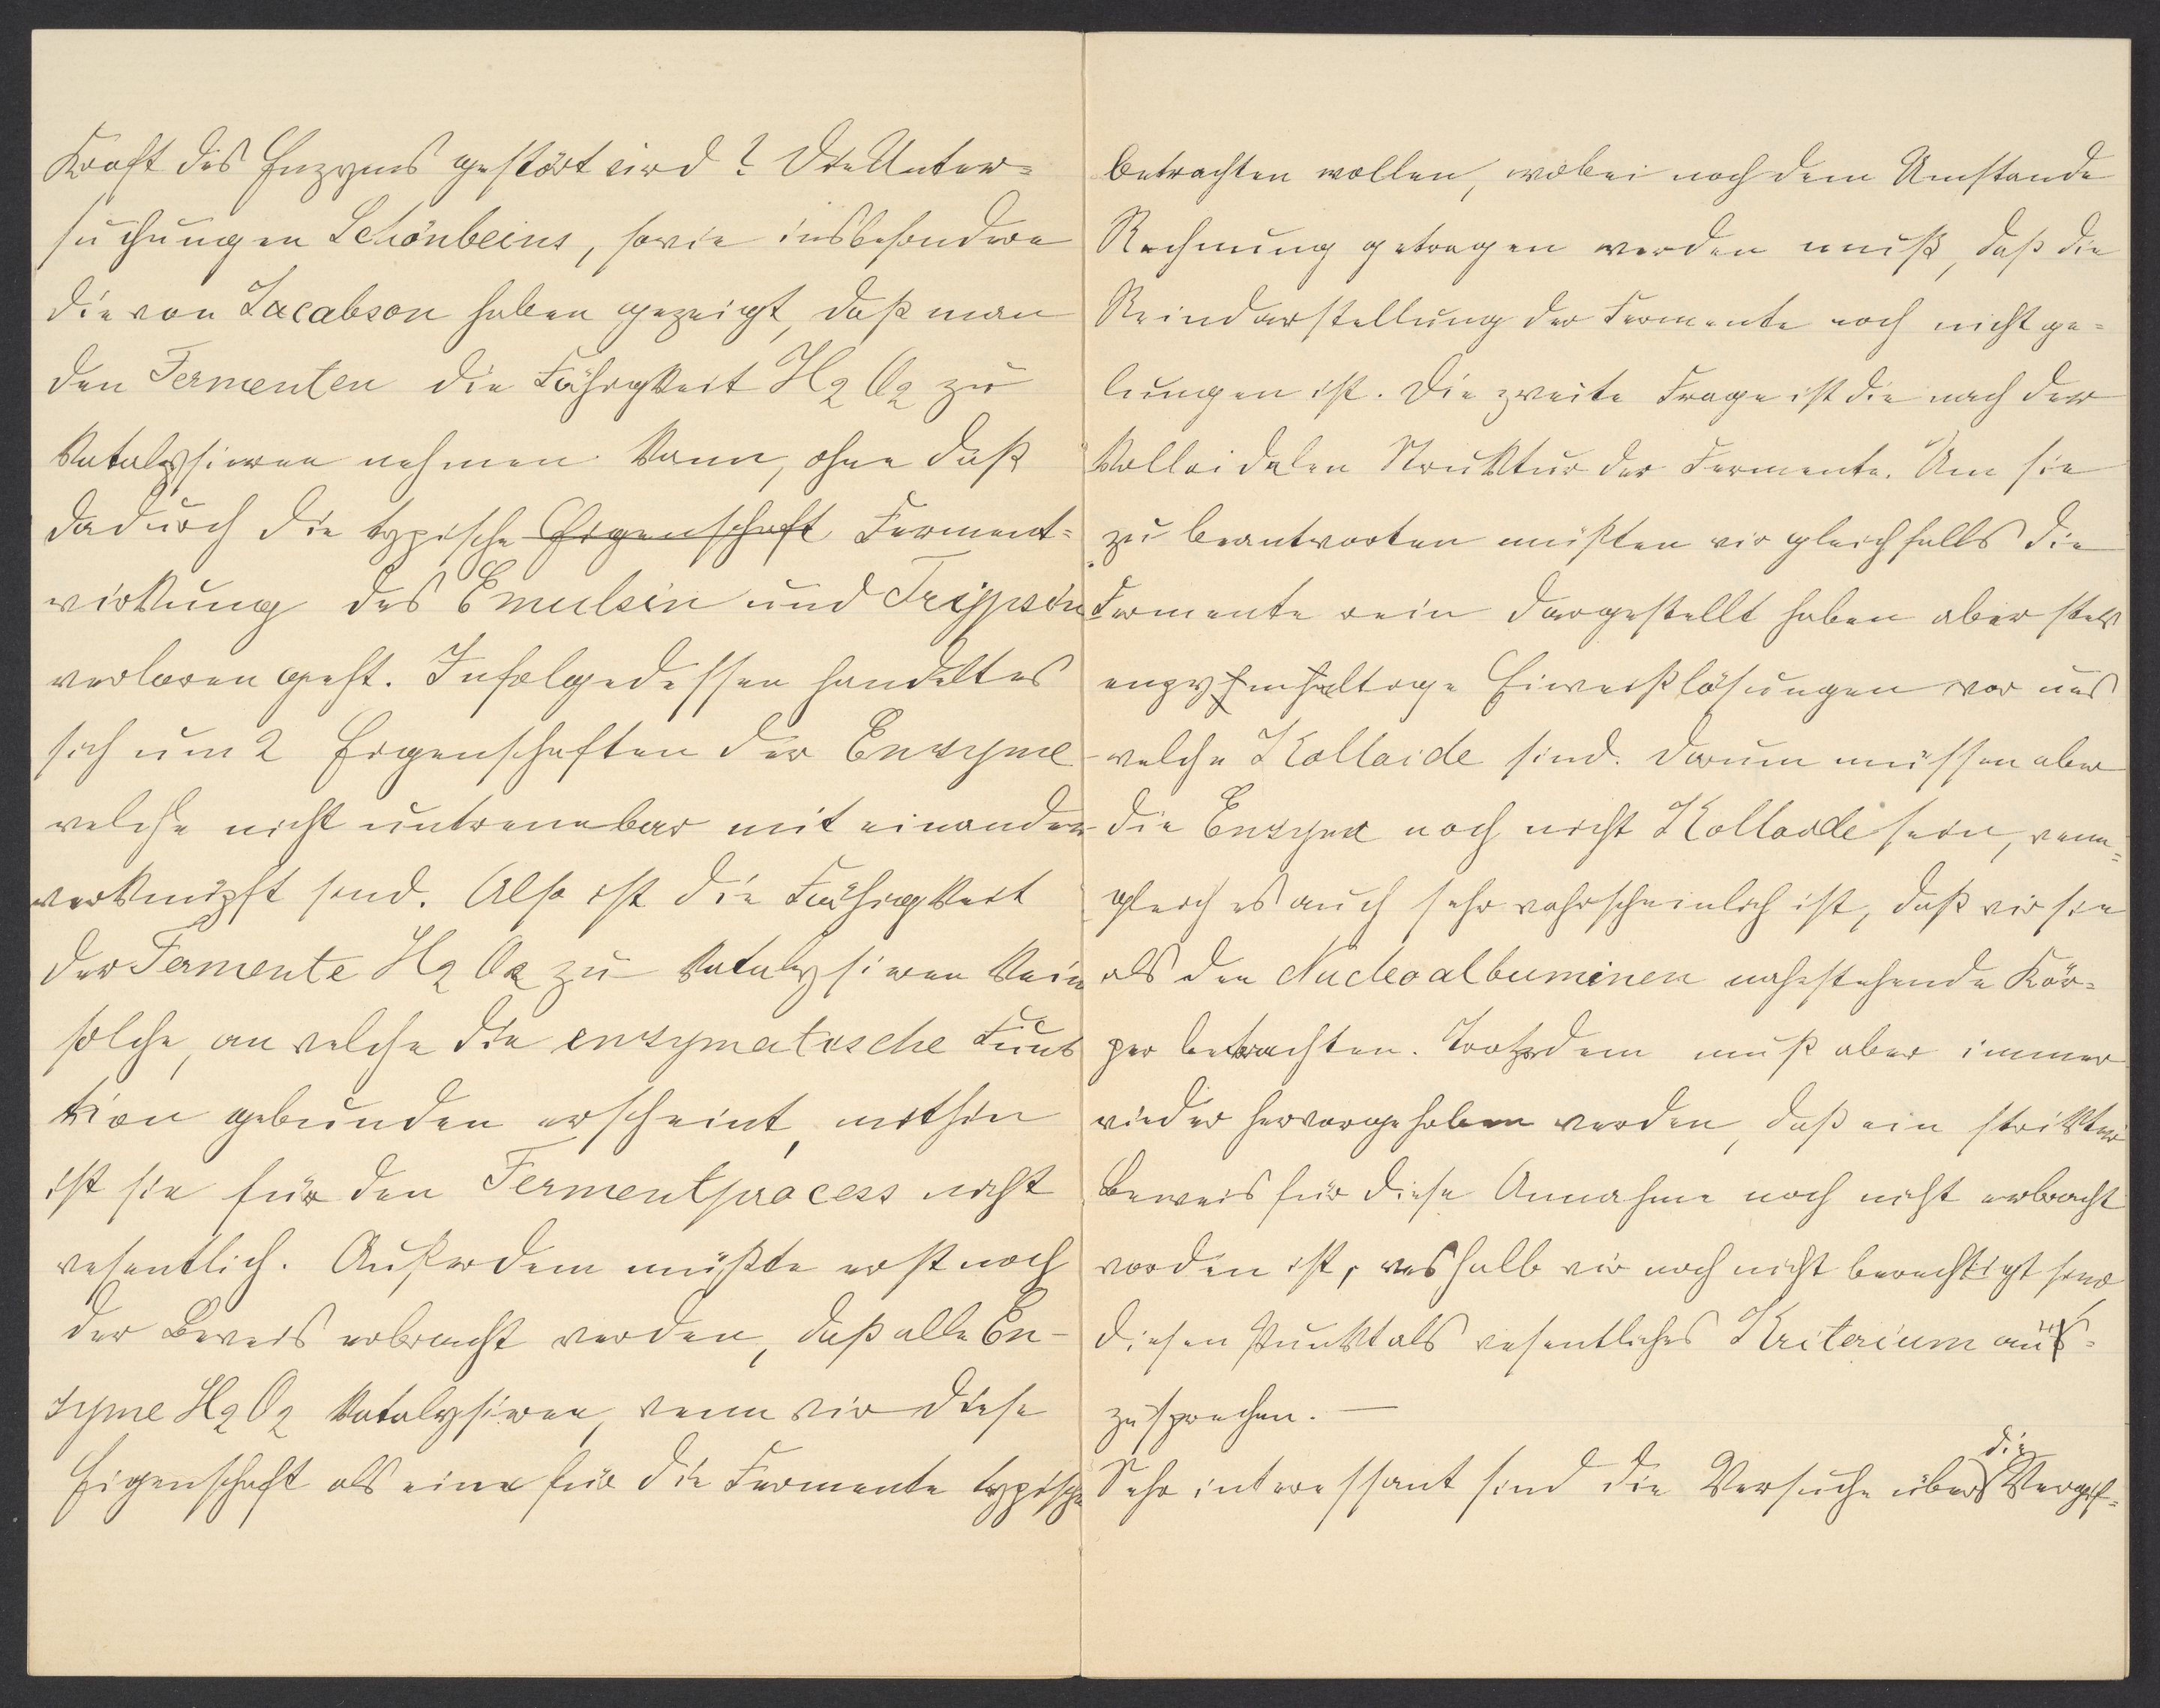 Kraft des Enzyms gestört wird? Die Unter=
suchungen Schönbeins, sowie insbesondere
die von Jacobson haben gezeigt, daß man
den Fermenten die Fähigkeit H2O2 zu
katalysieren nehmen kann, ohne daß
dadurch die typische Eigenschaft Ferment=
wirkung des Emulsin und Trypsin
verloren geht. Infolgedessen handelt es
sich um 2 Eigenschaften der Enzyme
welche nicht untrennbar mit einander
verknüpft sind. Also ist die Fähigkeit
der Fermente H2O2 zu katalysieren kein
solche, an welche die enzymatische Funk
tion gebunden erscheint, mithin
ist sie für den Fermentprocess nicht
wesentlich. Außerdem müßte erst noch
der Beweis erbracht werden, daß alle En-
zyme H2O2 katalysieren, wenn wir diese
Eigenschaft als eine für die Fermente typische
betrachten wollen, wobei noch dem Umstande
Rechnung getragen werden muß, daß die
Reindarstellung der Fermente noch nicht ge=
lungen ist. Die zweite Frage ist die nach der
kolloidalen Struktur der Fermente. Um sie
zu beantworten müßten wir gleichfalls die
Fermente rein dargestellt haben aber stets
enzymhaltige Eiweißlösungen vor uns
welche Kolloide sind. Darum müssen aber
die Enzyme noch nicht Kolloide sein, wenn=
gleich es auch sehr wahrscheinlich ist, daß wir sie
als den Nucleoalbuminen nahestehende Kör=
per betrachten. Trotzdem muß aber immer
wieder hervorgehoben werden, daß ein strikter
Beweis für diese Annahme noch nicht erbracht
worden ist, weshalb wir noch nicht berechtigt sind
diesen Punkt als wesentliches Kriterium aus=
zusprechen. —
Sehr interessant sind die Versuche über die Vergif=